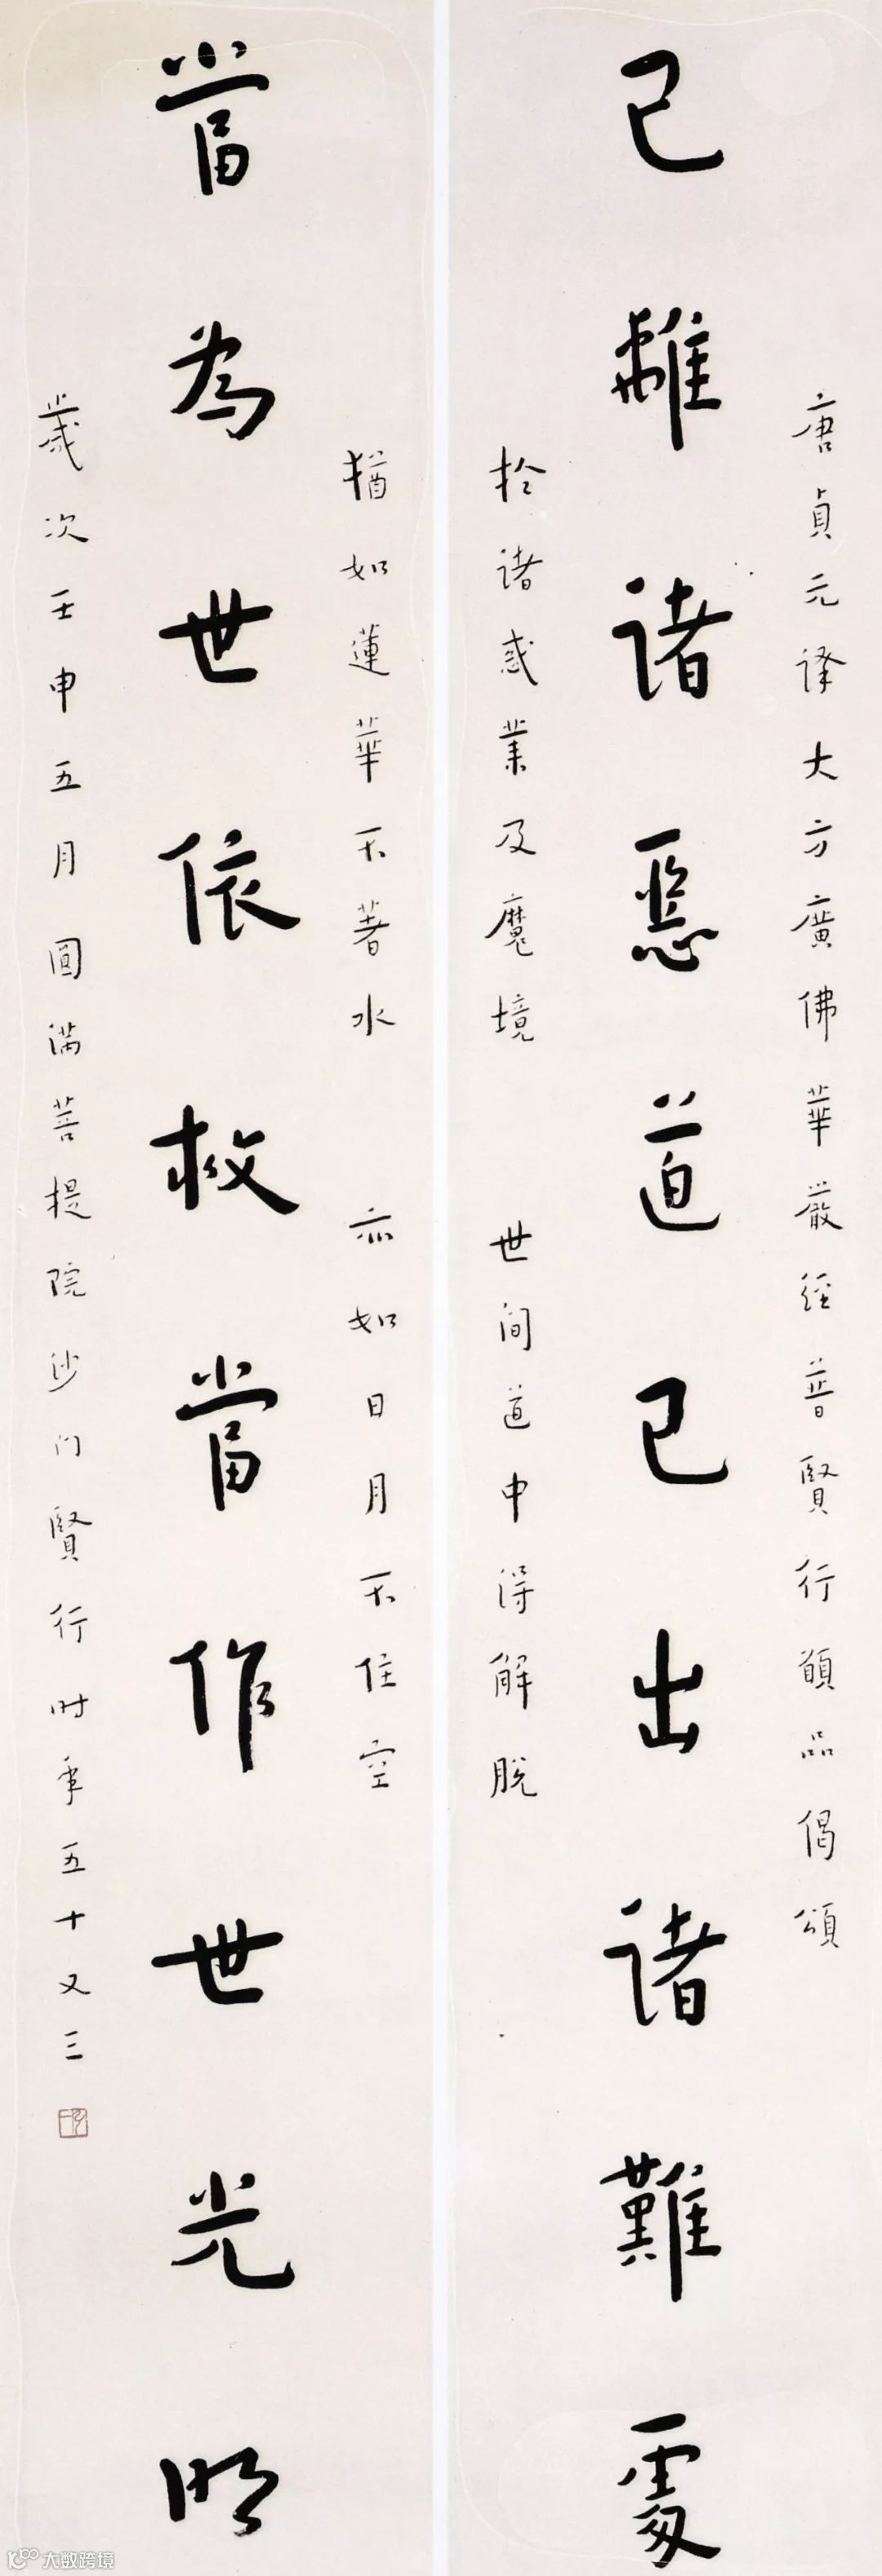 唐貞元譯大方廣佛華嚴經普賢行願品偈頌
已離諸惡道已出諸難處
於諸惑業及魔境 世間道中得解脫
猶如蓮華不著水 亦如日月不住空
當為世依救當作世光明
歲次壬申五月圓滿菩提院沙門賢行時年五十又三
大数跨境